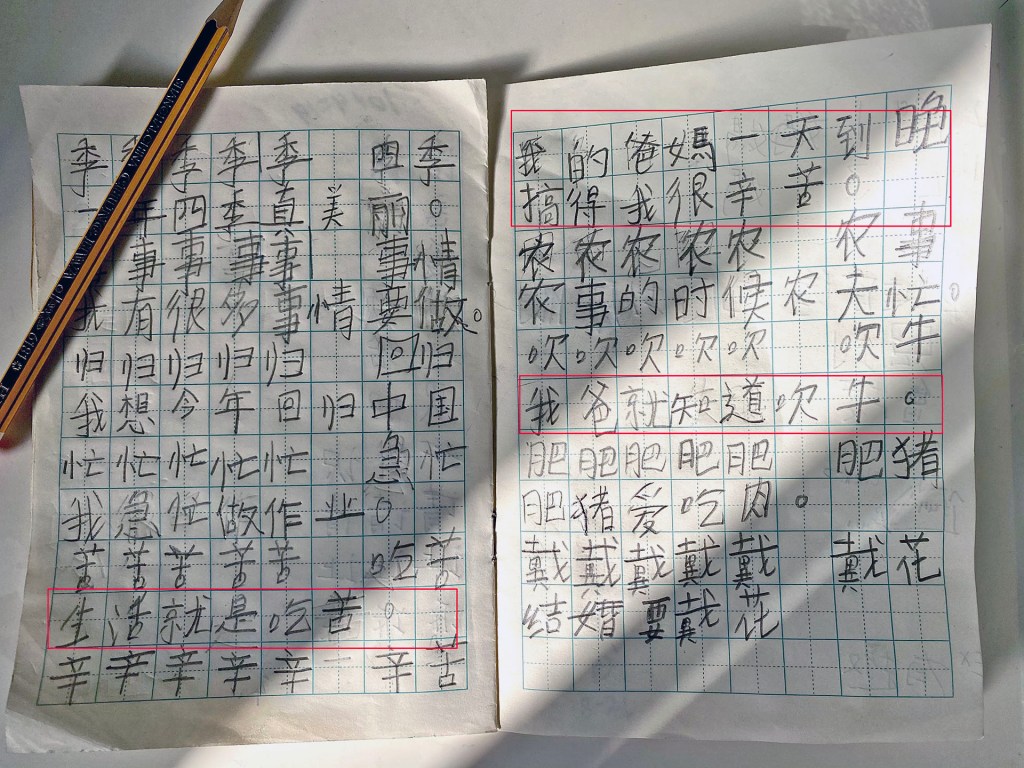 季季季季季 四季
一年四季真美丽。
事事事事 事情
我有很多事情要做。
归归归归归 回归
我想今年回归中国
忙忙忙忙忙 急忙
我急忙做作业。
苦苦苦苦苦 吃苦
生活就是吃苦。
辛辛辛辛辛 辛苦
我的爸媽一天到晚
搞得我很辛苦。
农农农农农 农事
农事的时候农夫忙。
吹吹吹吹吹 吹牛
我爸就知道吹牛。
肥肥肥肥肥 肥猪
肥猪爱吃肉。
戴戴戴戴戴 戴花
结婚要戴花